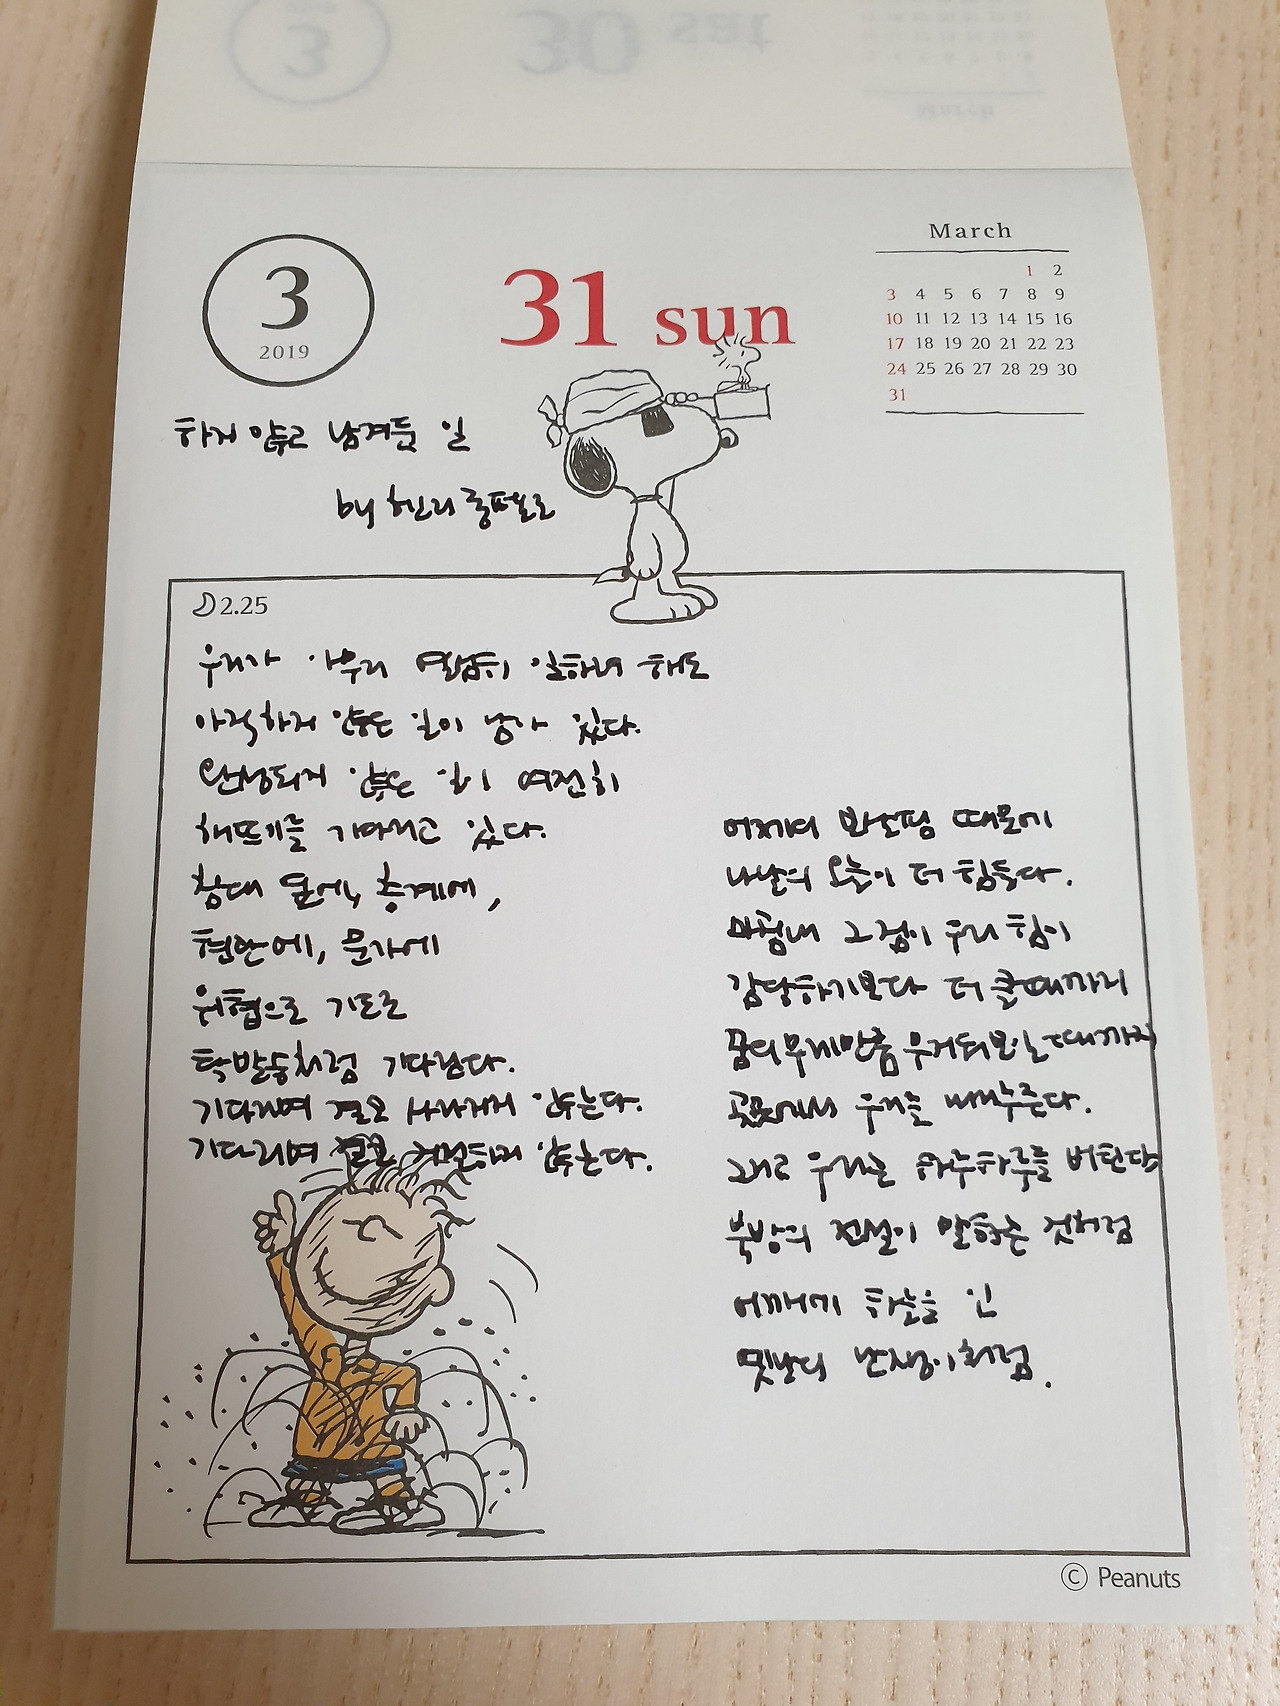 3
2019
31 sun
March
1 2
3 4 5 6 7 8 9
10 11 12 13 14 15 16
17 18 19 20 21 22 23
24 25 26 27 28 29 30
31
하지 않고 남겨둔 일
by 헨리 롱펠로
2.25
우리가 아무리 열심히 일하려 해도
아직 하지 않은 일이 남아 있다.
완성되지 않은 일이 여전히
해뜨기를 기다리고 있다.
침대 옆에, 층계에,
현관에, 문가에
위협으로 기도로
탁발승처럼 기다린다.
기다리며 결코 사라지지 않는다.
기다리며 결코 거절하지 않는다.
어제의 보살핌 때문에
나날의 오늘이 더 힘들다.
마침내 그 짐이 우리 힘이
감당하기보다 더 클 때까지
꿈의 무게만큼 무거워 보일 때까지
곳곳에서 우리를 내리누른다.
그리고 우리는 하루하루를 버틴다
북방의 전설이 말하는 것처럼
어깨에 하늘을 인
옛날의 난쟁이처럼.
© Peanuts